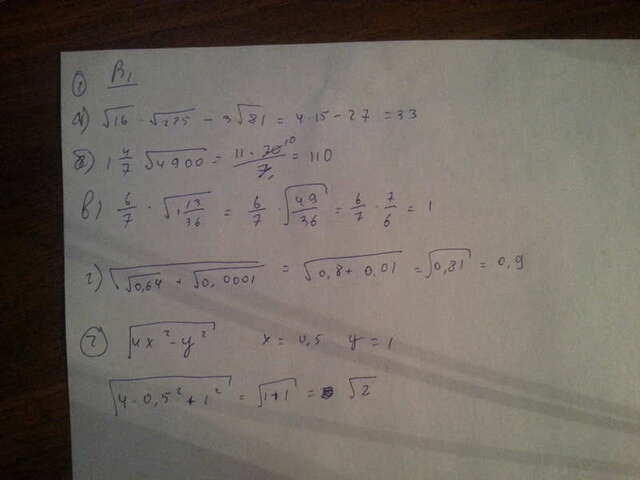 ① B₁
а) √16 · √225 − 3√81 = 4·15 − 27 = 33
б) 1 4/7 √4900 = 11·70/7 10 = 110
в) 6/7 · √(1 13/36) = 6/7 · √(49/36) = 6/7 · 7/6 = 1
г) √(√0,64 + √0,0001) = √(0,8 + 0,01) = √0,81 = 0,9
② √(4x² − y²) x = 0,5 y = 1
√(4 · 0,5² + 1²) = √(1+1) = √2